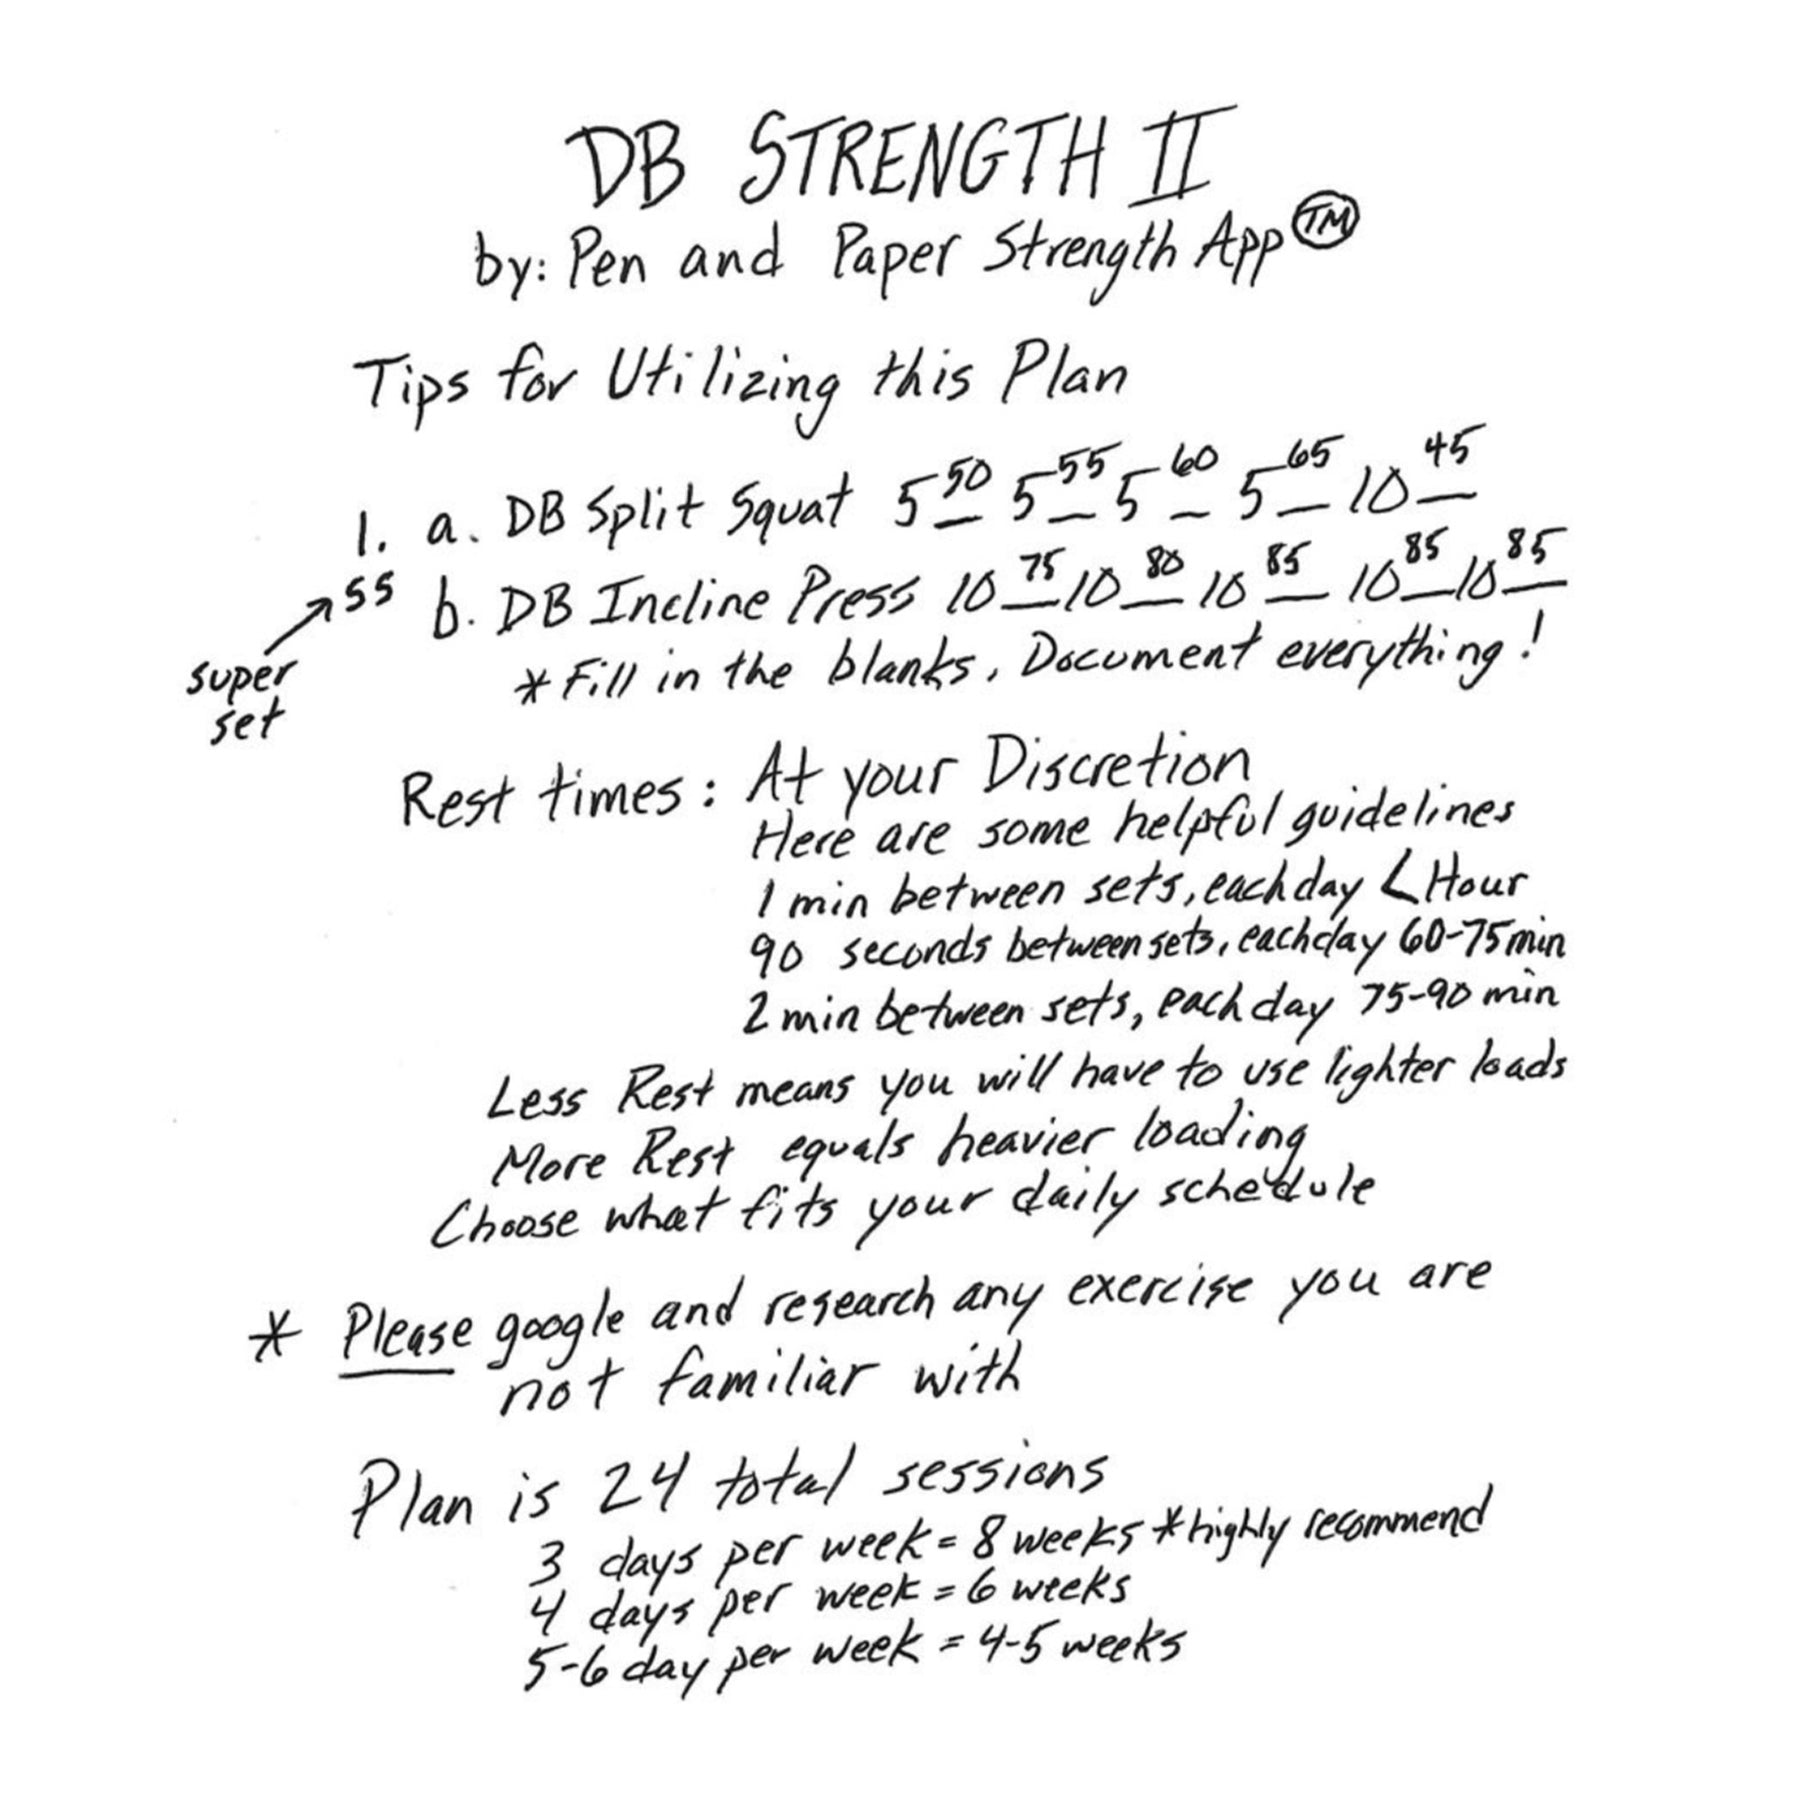 DB STRENGTH II
by: Pen and Paper Strength App TM
Tips for Utilizing this Plan
1. a. DB Split Squat 5 50 5 55 5 60 5 65 10 45
SS b. DB Incline Press 10 75 10 80 10 85 10 85 10 85
super
set
* Fill in the blanks, Document everything!
Rest times: At your Discretion
Here are some helpful guidelines
1 min between sets, each day < Hour
90 seconds between sets, each day 60-75 min
2 min between sets, each day 75-90 min
Less Rest means you will have to use lighter loads
More Rest equals heavier loading
Choose what fits your daily schedule
* Please google and research any exercise you are
not familiar with
Plan is 24 total sessions
3 days per week = 8 weeks * highly recommend
4 days per week = 6 weeks
5-6 day per week = 4-5 weeks